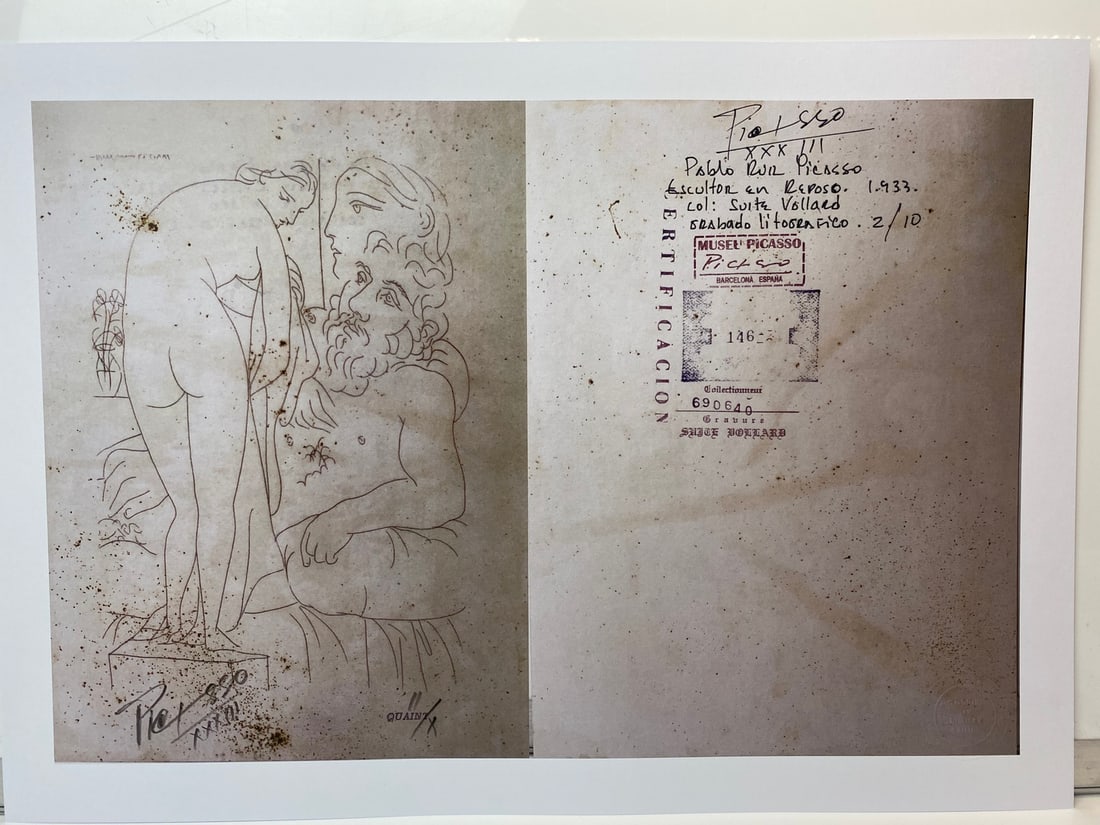 Picasso
XXXIII
QUAINT
II/X
Picasso
XXXIII
Pablo Ruiz Picasso
Escultor en Reposo. 1.933.
col: Suite Vollard
grabado litografico. 2/10
CERTIFICACION
MUSEU PiCASSO
Picasso
BARCELONA ESPAÑA
146-
Collectionneur
690640
Gravure
SUITE VOLLARD